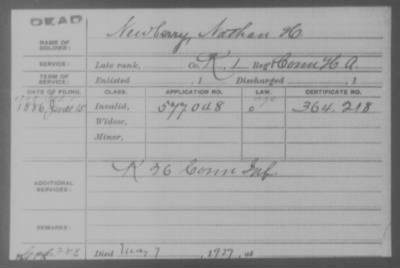 DEAD
NAME OF SOLDIER: Newberry, Nathan H.
SERVICE: Late rank, Co. K, 1 Reg't Conn H A.
TERM OF SERVICE: Enlisted , 1 Discharged , 1
DATE OF FILING. CLASS. APPLICATION NO. LAW. CERTIFICATE NO.
1886, June 15 Invalid, 577048 364.218
Widow,
Minor,
ADDITIONAL SERVICES: K 26 Conn Inf
REMARKS:
Died May 7, 1927, at